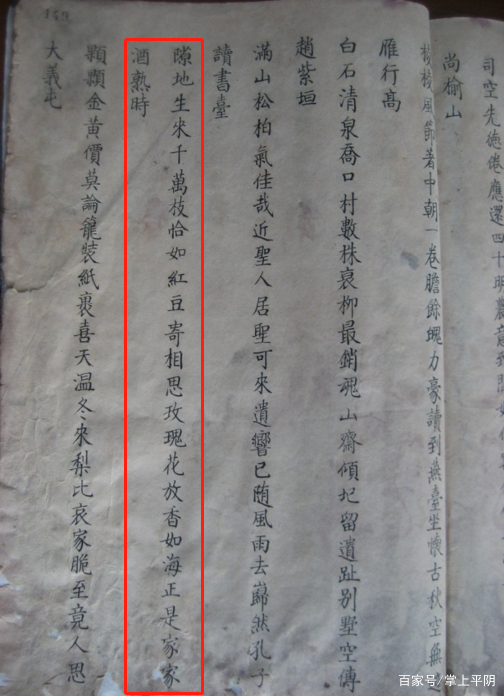 司空先德倦應還四十明農
尚榆山
稜稜風節著中朝一卷膽餘魄力豪讀到燕臺坐懷古秋空無
雁行高
白石清泉喬口村數株衰柳最銷魂山齋傾圮留遺趾別墅空傳
趙紫垣
滿山松柏氣佳哉近聖人居聖可來遺響已随風雨去巋然孔子
讀書臺
隙地生來千萬枝恰如紅豆寄相思玫瑰花放香如海正是家家
酒熟時
顆顆金黃價莫論籠裝紙裹喜天溫冬來梨比哀家脆至竟人思
大義屯
149
百家号/掌上平阴